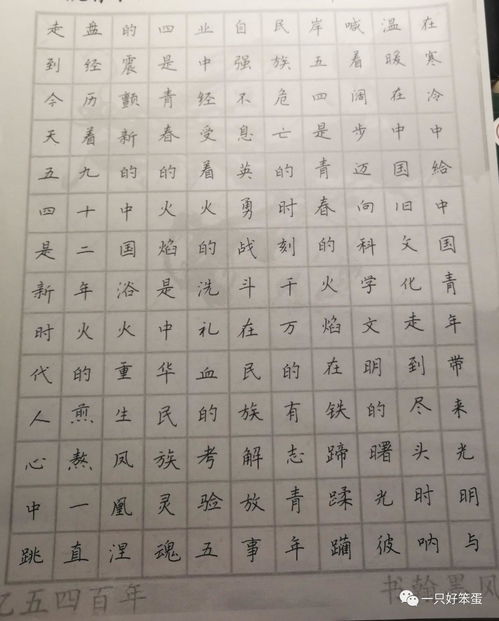 在寒冷中给中国青年带来光明与
温暖在中国旧文化走到尽头时呐
喊着阔步迈向科学文明的曙光彼
岸五四是青春的火焰在铁蹄蹂躏
民族危亡的时刻千万的有志青年
自强不息英勇战斗在民族解放事
业中经受着火的洗礼血的考验五
四是青春的火焰是中华民族灵魂
的震颤新的中国浴火重生凤凰涅
盘经历着九十二年火的煎熬一直
走到今天五四是新时代人心中跳
忆五四百年
书翰墨风
一只好笨蛋